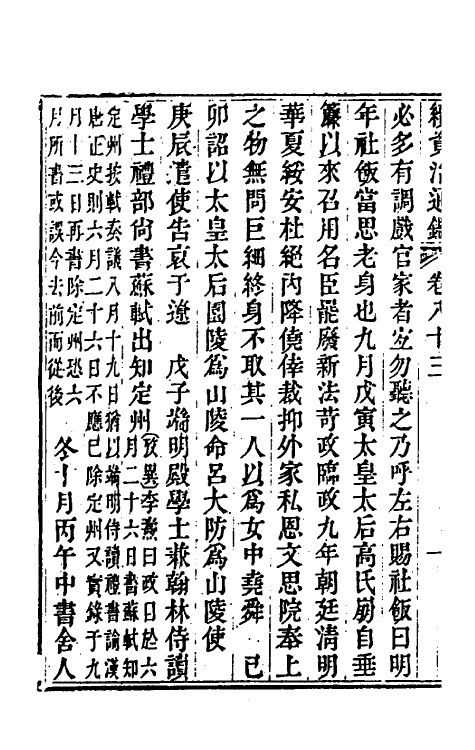 續資治通鑑 卷八十三 一
必多有調戲官家者宜勿聽之乃呼左右賜社飯曰明
年社飯當思老身也九月戊寅太皇太后高氏崩自垂
簾以來召用名臣罷廢新法苛政臨政九年朝廷淸明
華夏綏安杜絕內降僥倖裁抑外家私恩文思院奉上
之物無問巨細終身不取其一人以爲女中堯舜 己
卯詔以太皇太后園陵爲山陵命呂大防爲山陵使
庚辰遣使吿哀于遼 戊子端明殿學士兼翰林侍讀
學士禮部尙書蘇軾出知定州
攷異李燾曰政目於六
月二十六日書蘇軾知
定州按軾奏議八月十九日猶以端明侍讀禮書論漢
唐正史則六月二十六日不應已除定州又實錄于九
月十三日再書除定州恐六
月所書或誤今去前而從後
冬十月丙午中書舍人